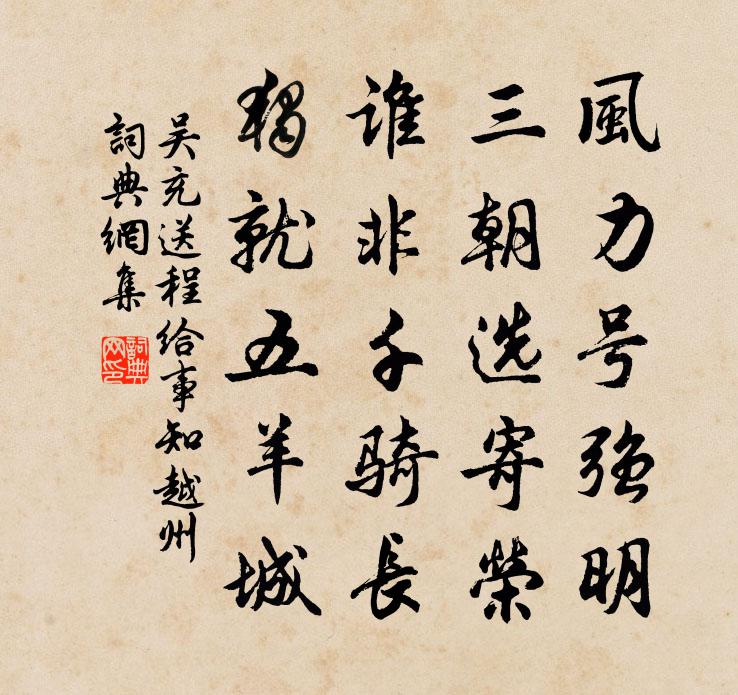 風力号強明
三朝选寄榮
谁非千騎長
獨就五羊城
吴充送程给事知越州
詞典網集
詞典网印